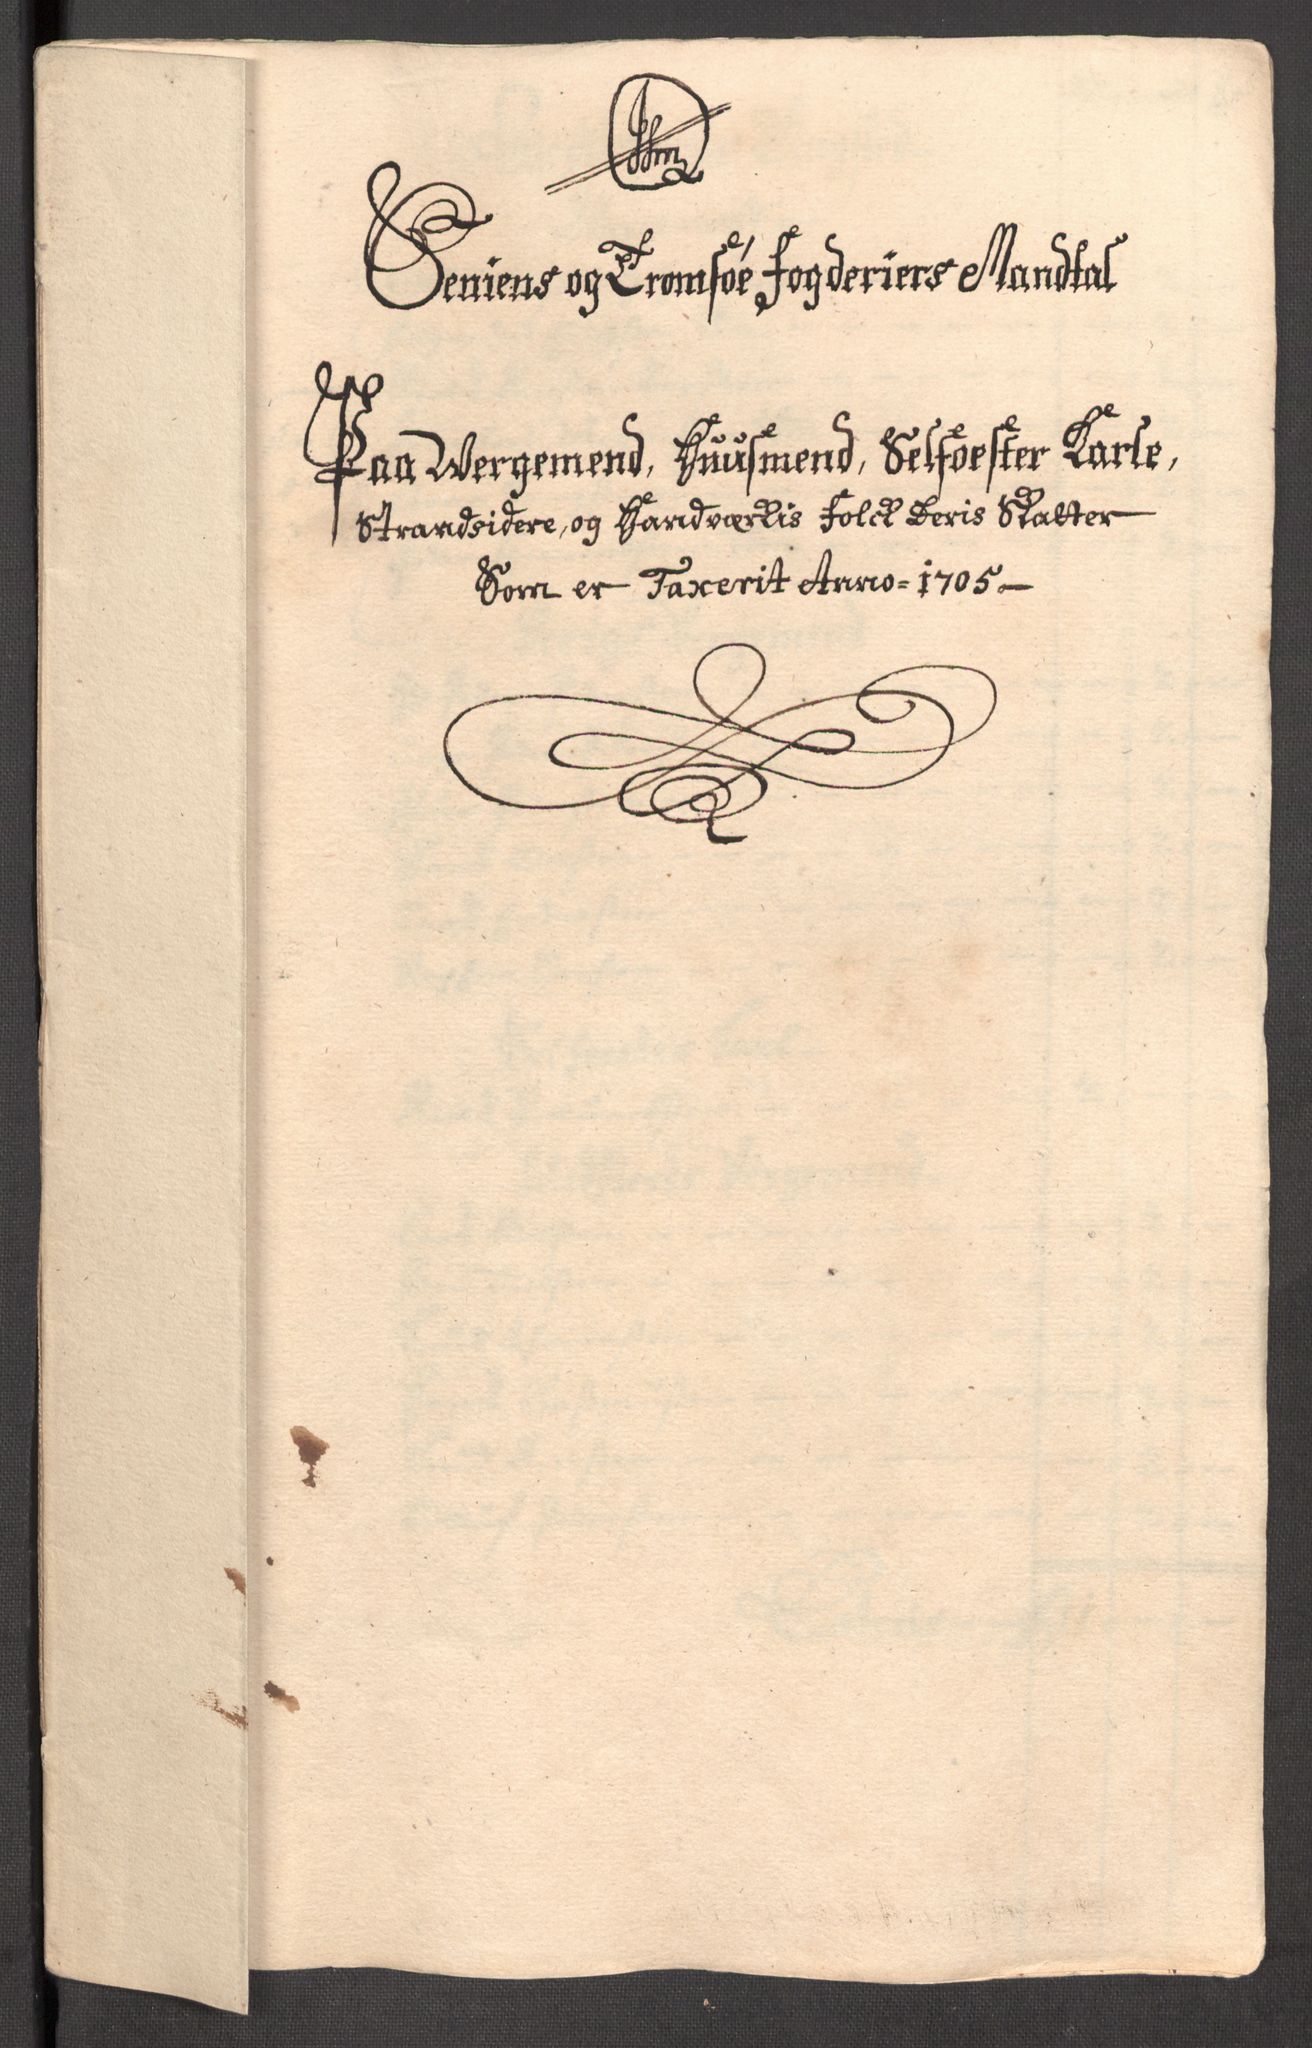 Seniens og Tromsøe fogderiers Mandtal
Paa Wergemend, Huusmend, Selfoester Karle,
Strandsidere, og Handværkis folck deris Skatter
Som er Taxerit Anno = 1705 -